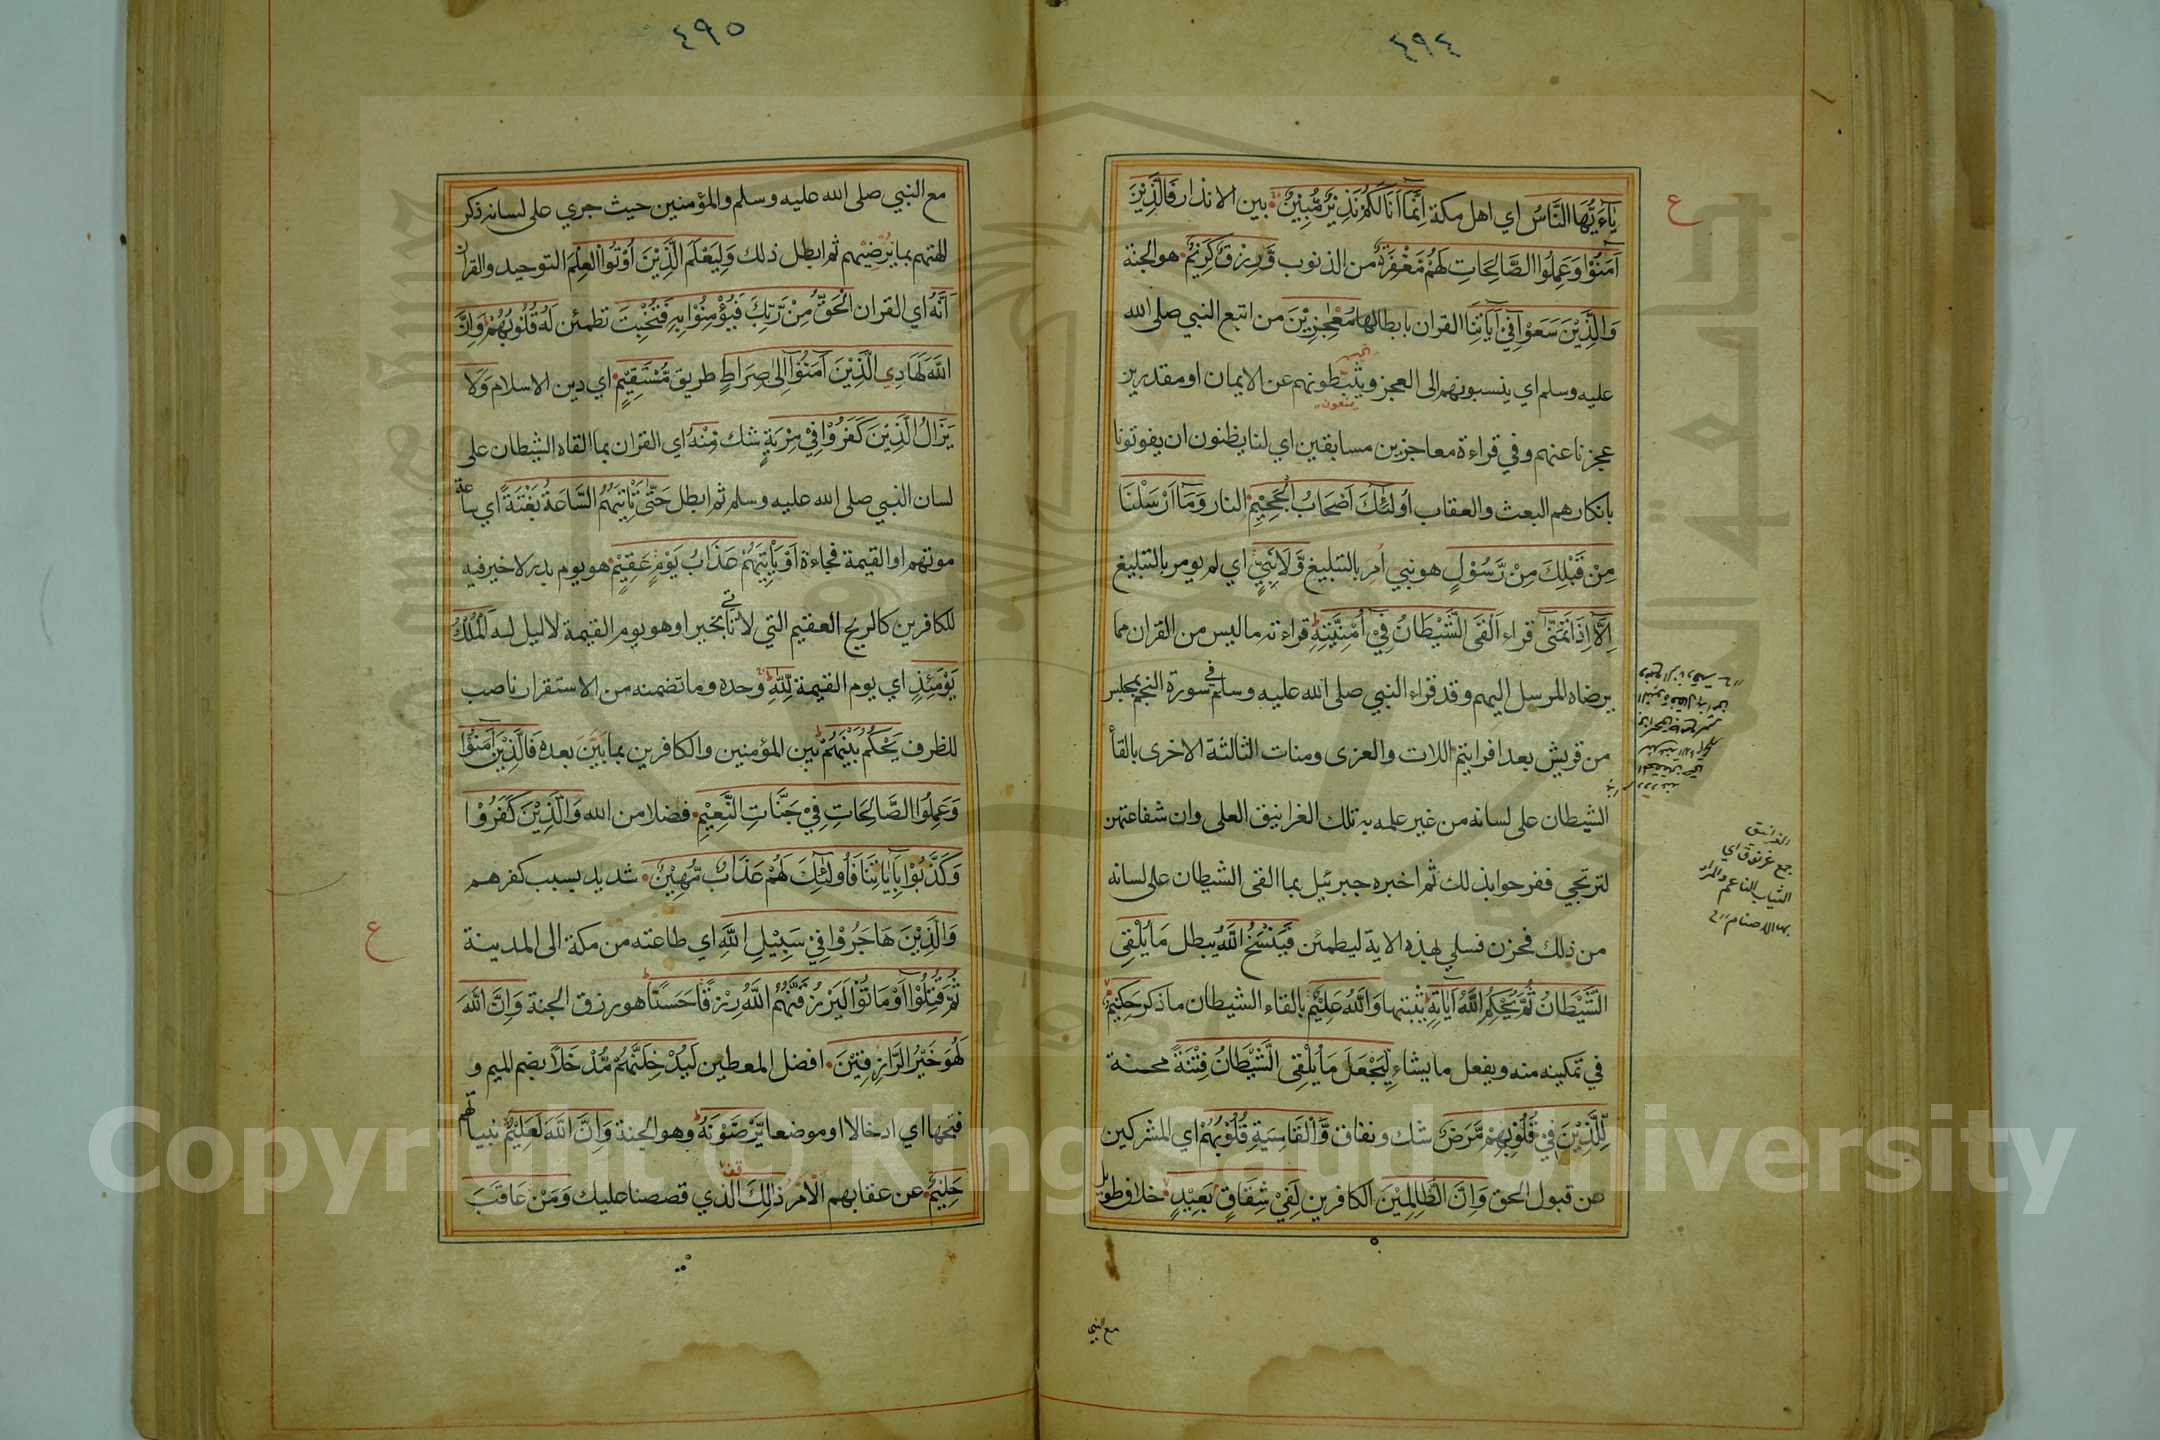 ٤٩٤
يٰٓاَيُّهَا النَّاسُ اي اهل مكة اِنَّمَآ اَنَا لَكُمْ نَذِيْرٌ مُّبِيْنٌ بين الانذار فَالَّذِيْنَ
اٰمَنُوْا وَعَمِلُوا الصَّالِحَاتِ لَهُمْ مَّغْفِرَةٌ من الذنوب وَّرِزْقٌ كَرِيْمٌ هو الجنة
وَالَّذِيْنَ سَعَوْا فِيْٓ اٰيَاتِنَا القران بابطالها مُعٰجِزِيْنَ من اتبع النبي صلى الله
عليه وسلم اي ينسبونهم الى العجز ويثبطونهم عن الايمان او مقدرين
عجزنا عنهم وفي قراءة معاجزين مسابقين اي لنا يظنون ان يفوتونا
بانكارهم البعث والعقاب اُولٰٓئِكَ اَصْحَابُ الْجَحِيْمِ النار وَمَآ اَرْسَلْنَا
مِنْ قَبْلِكَ مِنْ رَّسُوْلٍ هو نبي اُمر بالتبليغ وَّلَا نَبِيٍّ اي لم يومر بالتبليغ
اِلَّآ اِذَا تَمَنّٰىٓ قراء اَلْقَى الشَّيْطَانُ فِيْٓ اُمْنِيَّتِهٖ قراءته ما ليس من القران مما
يرضاه المرسل اليهم وقد قراء النبي صلى الله عليه وسلم في سورة النجم بمجلس
من قريش بعد افرايتم اللات والعزى ومنات الثالثة الاخرى بالقأ
الشيطان على لسانه من غير علمه به تلك الغرانيق العلى وان شفاعتهن
لترتجى ففرحوا بذلك ثم اخبره جبرئيل بما القى الشيطان على لسانه
من ذلك فحزن فسلي بهذه الاية ليطمئن فَيَنْسَخُ اللّٰهُ يبطل مَا يُلْقِى
الشَّيْطَانُ ثُمَّ يُحْكِمُ اللّٰهُ اٰيَاتِهٖ يثبتها وَاللّٰهُ عَلِيْمٌ بالقاء الشيطان ما ذكر حَكِيْمٌ
في تمكينه منه ويفعل ما يشاء لِّيَجْعَلَ مَا يُلْقِى الشَّيْطَانُ فِتْنَةً محنة
لِّلَّذِيْنَ فِيْ قُلُوْبِهِمْ مَّرَضٌ شك ونفاق وَّالْقَاسِيَةِ قُلُوْبُهُمْ اي المشركين
عن قبول الحق وَاِنَّ الظَّالِمِيْنَ الكافرين لَفِيْ شِقَاقٍ بَعِيْدٍ خلاف طويل
ع
يمنعون
الغرانيق
جمع غرنوق اي
الشباب الناعم والمراد
بها الاصنام
مع النبي
٤٩٥
مع النبي صلى الله عليه وسلم والمؤمنين حيث جرى على لسانه ذكر
الهتهم بما يرضيهم ثم ابطل ذلك وَلِيَعْلَمَ الَّذِيْنَ اُوْتُوا الْعِلْمَ التوحيد والقران
اَنَّهُ اي القران الْحَقُّ مِنْ رَّبِّكَ فَيُؤْمِنُوْا بِهٖ فَتُخْبِتَ تطمئن لَهٗ قُلُوْبُهُمْ وَاِنَّ
اللّٰهَ لَهَادِي الَّذِيْنَ اٰمَنُوْٓا اِلٰى صِرَاطٍ طريق مُّسْتَقِيْمٍ اي دين الاسلام وَلَا
يَزَالُ الَّذِيْنَ كَفَرُوْا فِيْ مِرْيَةٍ شك مِّنْهُ اي القران بما القاه الشيطان على
لسان النبي صلى الله عليه وسلم ثم ابطل حَتّٰى تَاْتِيَهُمُ السَّاعَةُ بَغْتَةً اي ساعة
موتهم او القيمة فجاءة اَوْ يَاْتِيَهُمْ عَذَابُ يَوْمٍ عَقِيْمٍ هو يوم بدر لا خير فيه
للكافرين كالريح العقيم التي لا تأتي بخير او هو يوم القيمة لا ليل له اَلْمُلْكُ
يَوْمَئِذٍ اي يوم القيمة لِلّٰهِ وحده وما تضمنه من الاستقرار ناصب
للظرف يَحْكُمُ بَيْنَهُمْ بين المؤمنين والكافرين بما بَيَّنَ بعده فَالَّذِيْنَ اٰمَنُوْا
وَعَمِلُوا الصَّالِحَاتِ فِيْ جَنَّاتِ النَّعِيْمِ فضلا من الله وَالَّذِيْنَ كَفَرُوْا
وَكَذَّبُوْا بِاٰيَاتِنَا فَاُولٰٓئِكَ لَهُمْ عَذَابٌ مُّهِيْنٌ شديد بسبب كفرهم
وَالَّذِيْنَ هَاجَرُوْا فِيْ سَبِيْلِ اللّٰهِ اي طاعته من مكة الى المدينة
ثُمَّ قُتِلُوْٓا اَوْ مَاتُوْا لَيَرْزُقَنَّهُمُ اللّٰهُ رِزْقًا حَسَنًا هو رزق الجنة وَاِنَّ اللّٰهَ
لَهُوَ خَيْرُ الرَّازِقِيْنَ افضل المعطين لَيُدْخِلَنَّهُمْ مُّدْخَلًا بضم الميم و
فتحها اي ادخالا او موضعا يَّرْضَوْنَهٗ وهو الجنة وَاِنَّ اللّٰهَ لَعَلِيْمٌ بنياتهم
حَلِيْمٌ عن عقابهم الامر ذٰلِكَ الذي قصصنا عليك وَمَنْ عَاقَبَ
ع
Copyright © King Saud University